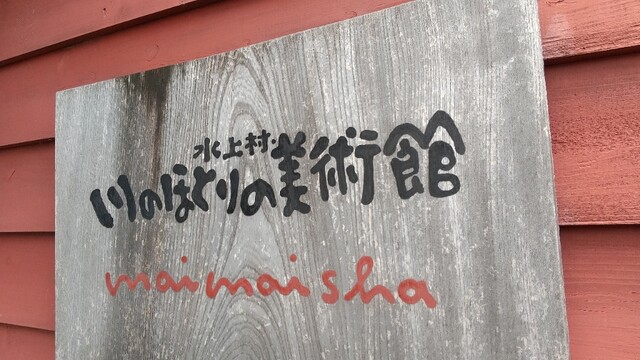 水上村・
川のほとりの美術館
maimaisha